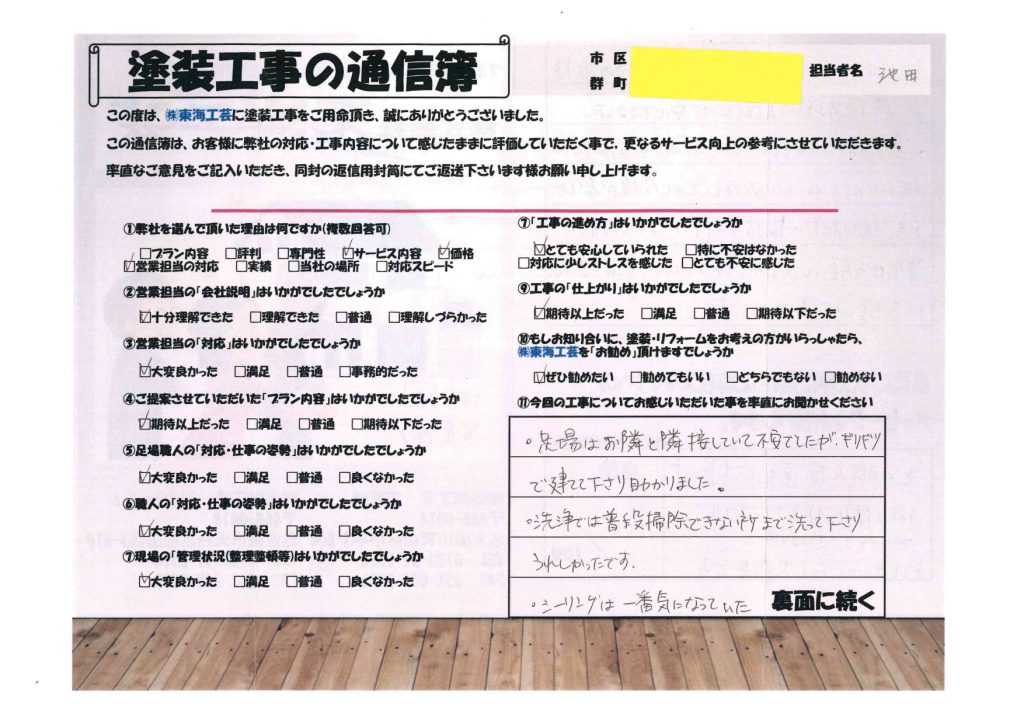 塗装工事の通信簿
市 区
群 町
担当者名 池田
この度は、㈱東海工芸に塗装工事をご用命頂き、誠にありがとうございました。
この通信簿は、お客様に弊社の対応・工事内容について感じたままに評価していただく事で、更なるサービス向上の参考にさせていただきます。
率直なご意見をご記入いただき、同封の返信用封筒にてご返送下さいます様お願い申し上げます。
①弊社を選んで頂いた理由は何ですか(複数回答可)
□プラン内容 □評判 □専門性 ☑サービス内容 ☑価格
☑営業担当の対応 □実績 □当社の場所 □対応スピード
②営業担当の「会社説明」はいかがでしたでしょうか
☑十分理解できた □理解できた □普通 □理解しづらかった
③営業担当の「対応」はいかがでしたでしょうか
☑大変良かった □満足 □普通 □事務的だった
④ご提案させていただいた「プラン内容」はいかがでしたでしょうか
☑期待以上だった □満足 □普通 □期待以下だった
⑤足場職人の「対応・仕事の姿勢」はいかがでしたでしょうか
☑大変良かった □満足 □普通 □良くなかった
⑥職人の「対応・仕事の姿勢」はいかがでしたでしょうか
☑大変良かった □満足 □普通 □良くなかった
⑦現場の「管理状況(整理整頓等)はいかがでしたでしょうか
☑大変良かった □満足 □普通 □良くなかった
⑦「工事の進め方」はいかがでしたでしょうか
☑とても安心していられた □特に不安はなかった
□対応に少しストレスを感じた □とても不安に感じた
⑨工事の「仕上がり」はいかがでしたでしょうか
☑期待以上だった □満足 □普通 □期待以下だった
⑩もしお知り合いに、塗装・リフォームをお考えの方がいらっしゃたら、
㈱東海工芸を「お勧め」頂けますでしょうか
☑ぜひ勧めたい □勧めてもいい □どちらでもない □勧めない
⑪今回の工事についてお感じいただいた事を率直にお聞かせください
・足場はお隣と隣接していて不安でしたが、ギリギリ
で建てて下さり助かりました。
・洗浄では普段掃除できない所まで洗って下さり
うれしかったです。
・シーリングは一番気になっていた
裏面に続く